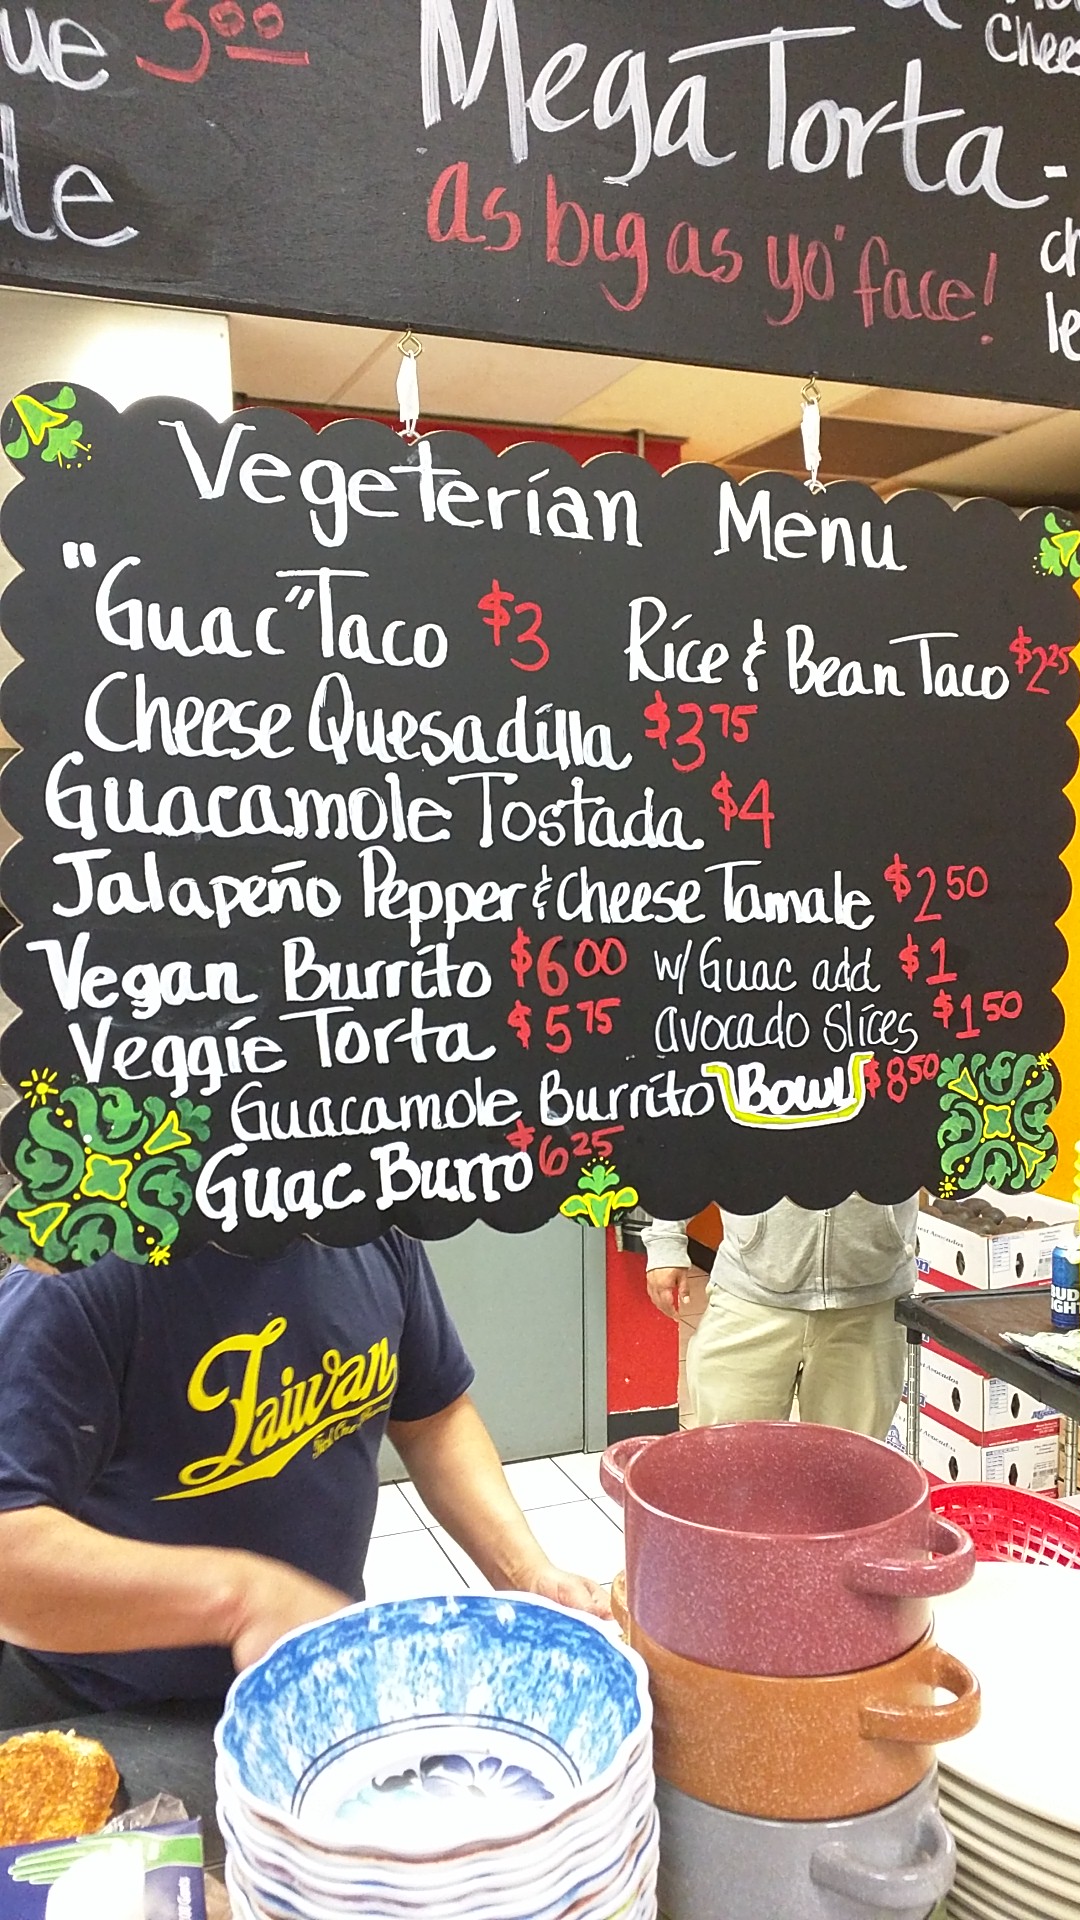 3⁰⁰
Mega Torta -
as big as yo' face!
Vegeterian Menu
"Guac" Taco $3 Rice & Bean Taco $2²⁵
Cheese Quesadilla $3⁷⁵
Guacamole Tostada $4
Jalapeño Pepper & Cheese Tamale $2⁵⁰
Vegan Burrito $6⁰⁰ w/ Guac add $1
Veggie Torta $5⁷⁵ avocado slices $1⁵⁰
Guacamole Burrito Bowl $8⁵⁰
Guac. Burro $6²⁵
Taiwan
BUD
LIGHT